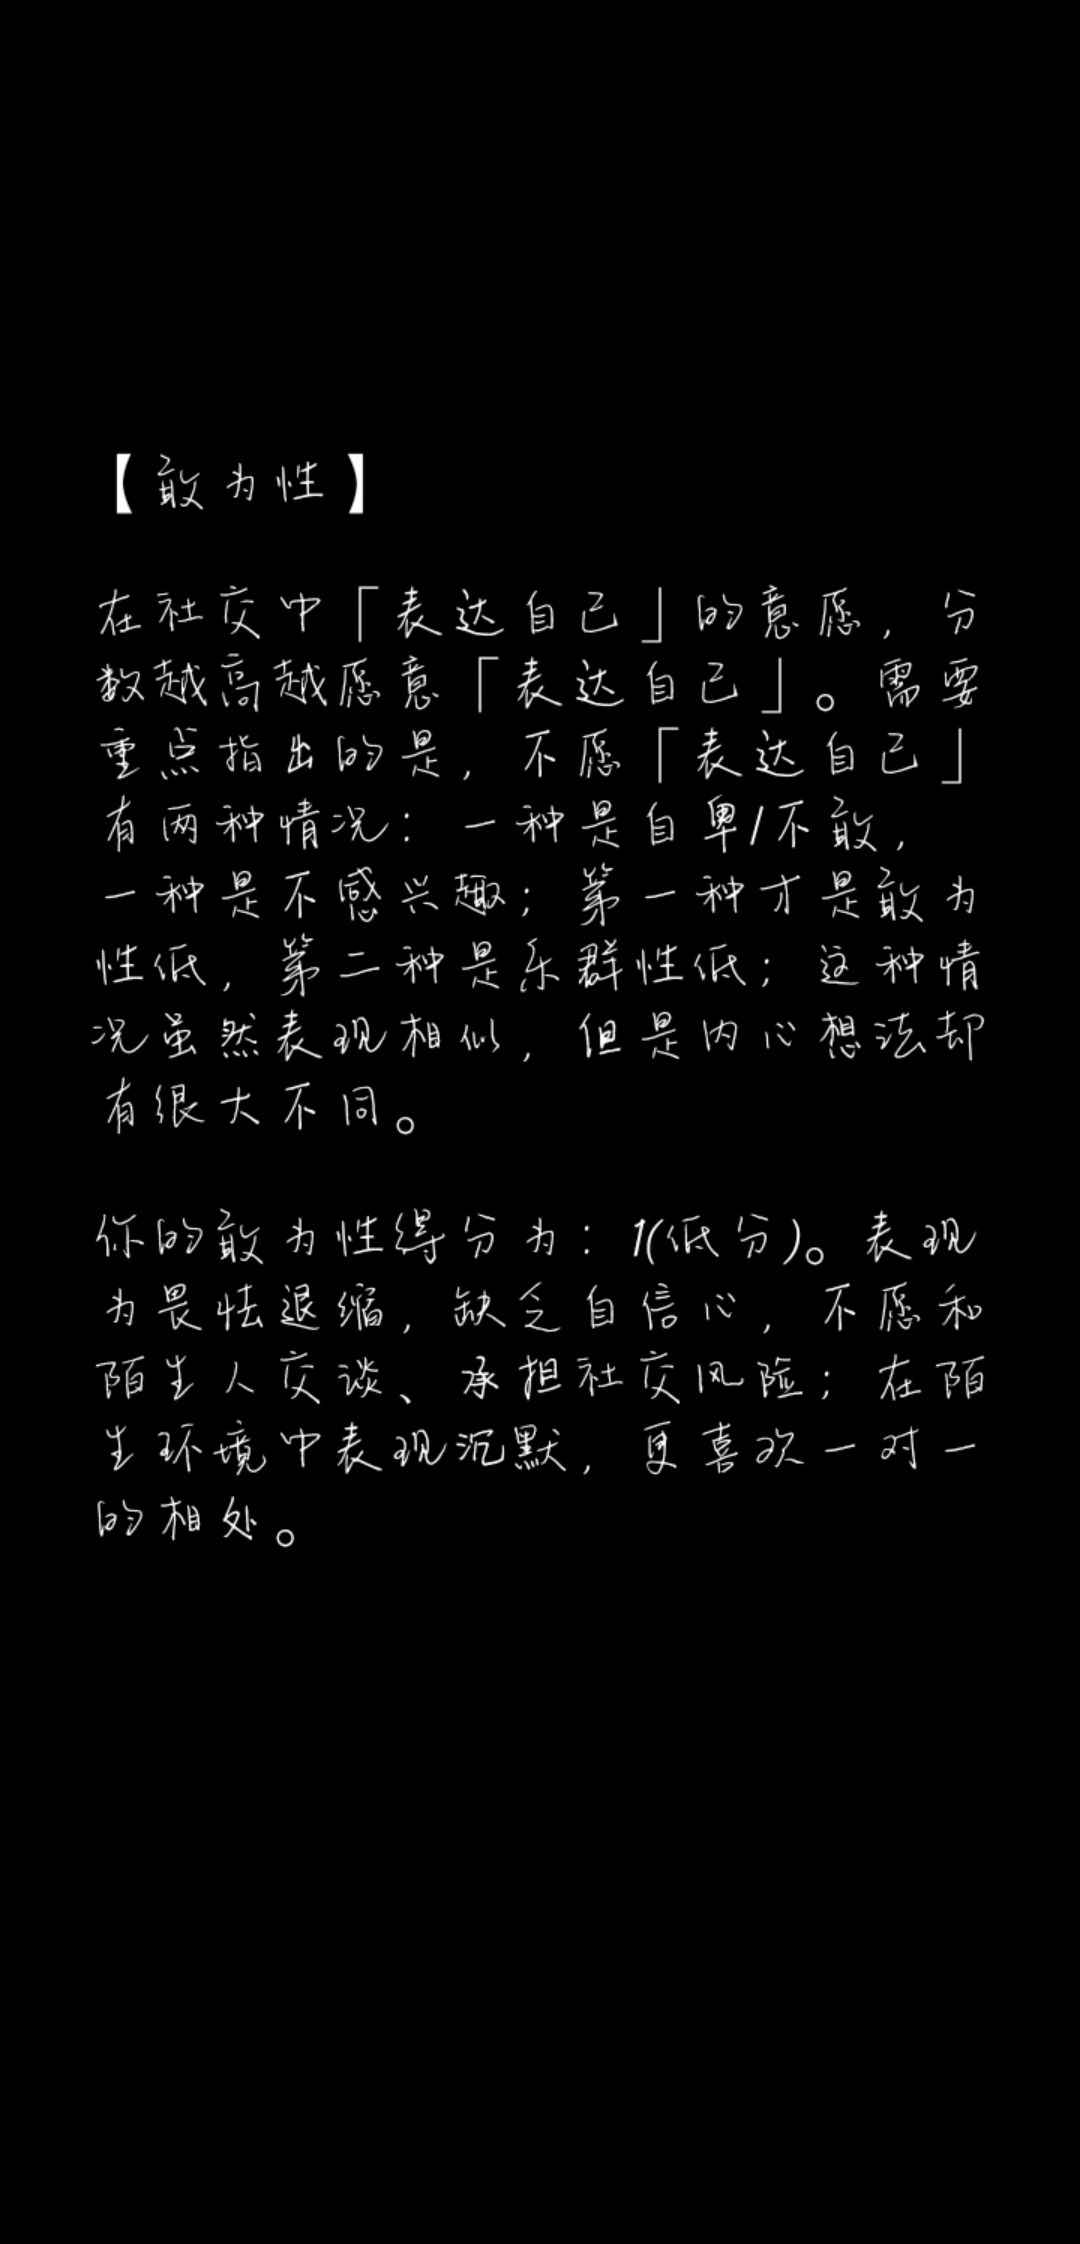 【敢为性】
在社交中「表达自己」的意愿，分
数越高越愿意「表达自己」。需要
重点指出的是，不愿「表达自己」
有两种情况：一种是自卑/不敢，
一种是不感兴趣；第一种才是敢为
性低，第二种是乐群性低；这种情
况虽然表现相似，但是内心想法却
有很大不同。
你的敢为性得分为：1(低分)。表现
为畏怯退缩，缺乏自信心，不愿和
陌生人交谈、承担社交风险；在陌
生环境中表现沉默，更喜欢一对一
的相处。